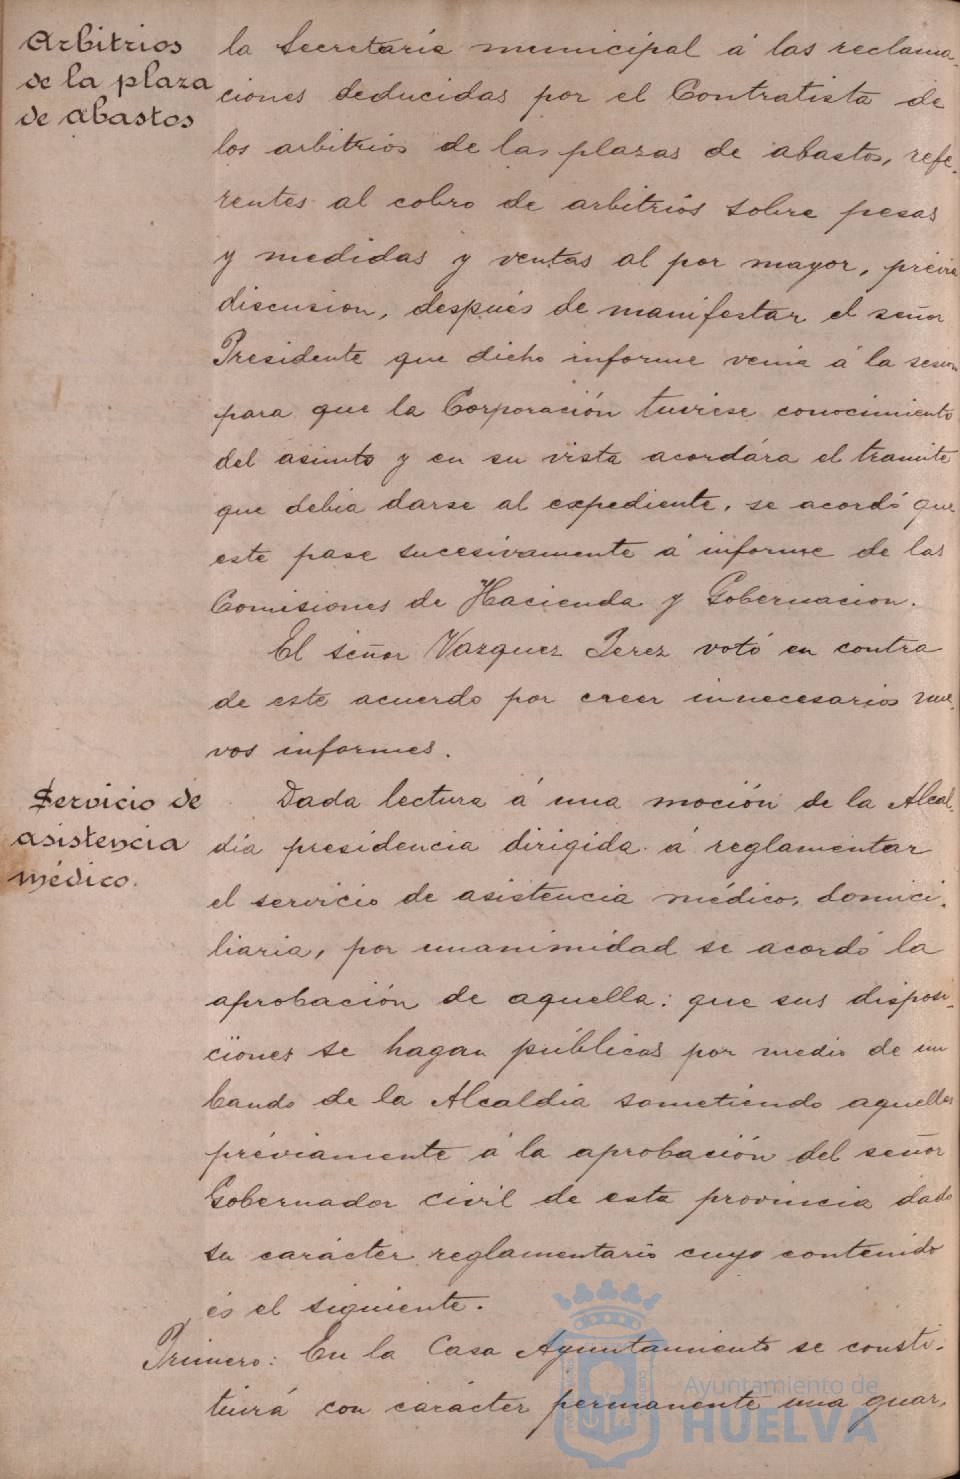 Arbitrios
de la plaza
de abastos
la Secretaría municipal á las reclama-
ciones deducidas por el Contratista de
los arbitrios de las plazas de abastos, refe-
rentes al cobro de arbitrios sobre pesas
y medidas y ventas al por mayor, prévia
discusion, después de manifestar el señor
Presidente que dicho informe venia á la sesion
para que la Corporación tuviese conocimiento
del asunto y en su vista acordára el tramite
que debia darse al expediente, se acordó que
este pase sucesivamente á informe de las
Comisiones de Hacienda y Gobernacion.
El señor Vazquez Perez votó en contra
de este acuerdo por creer innecesarios nue-
vos informes.
Servicio de
asistencia
médico.
Dada lectura á una moción de la Alcal-
día presidencia dirigida á reglamentar
el servicio de asistencia médico, domici-
liaria, por unanimidad se acordó la
aprobación de aquella: que sus disposi-
ciones se hagan públicas por medio de un
bando de la Alcaldía sometiendo aquellas
préviamente á la aprobación del señor
Gobernador civil de esta provincia dado
su carácter reglamentario cuyo contenido
és el siguiente.
Primero: En la Casa Ayuntamiento se consti-
tuirá con carácter permanente una guar-
Ayuntamiento de
HUELVA